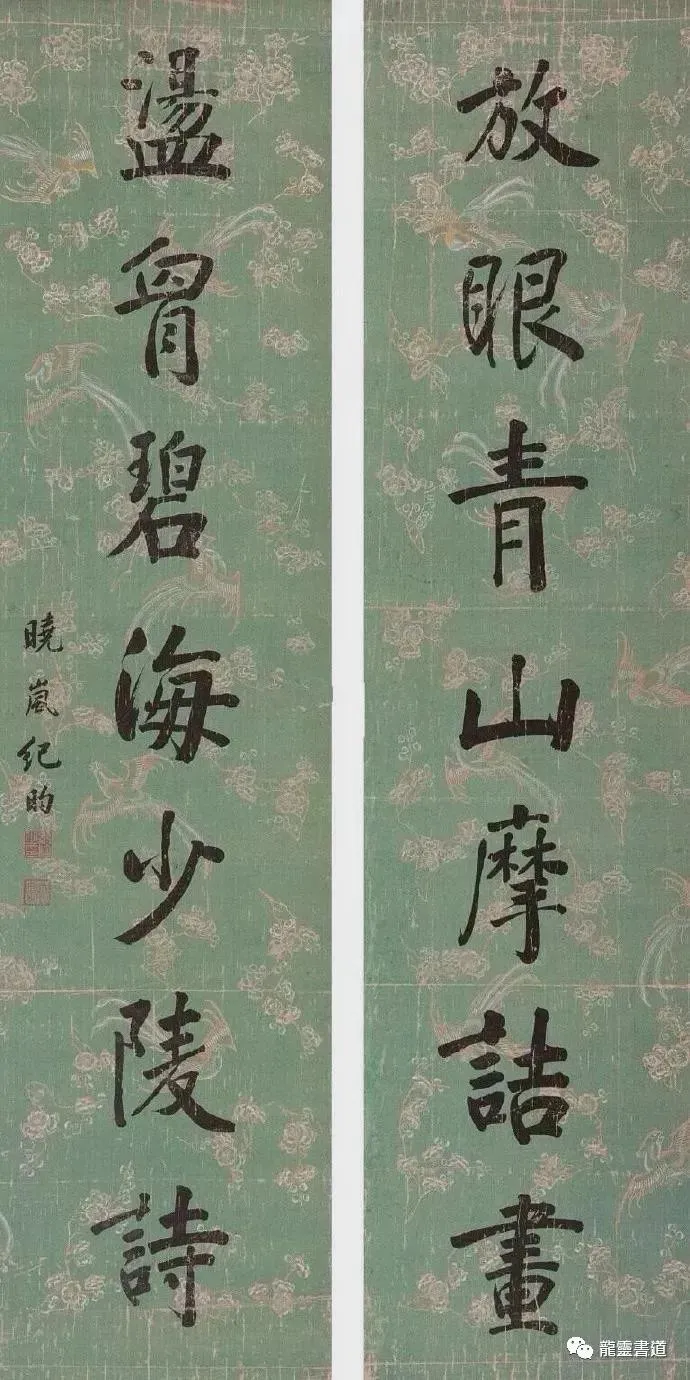 放眼青山摩詰畫
盪胷碧海少陵詩
曉嵐紀昀
龍靈書道